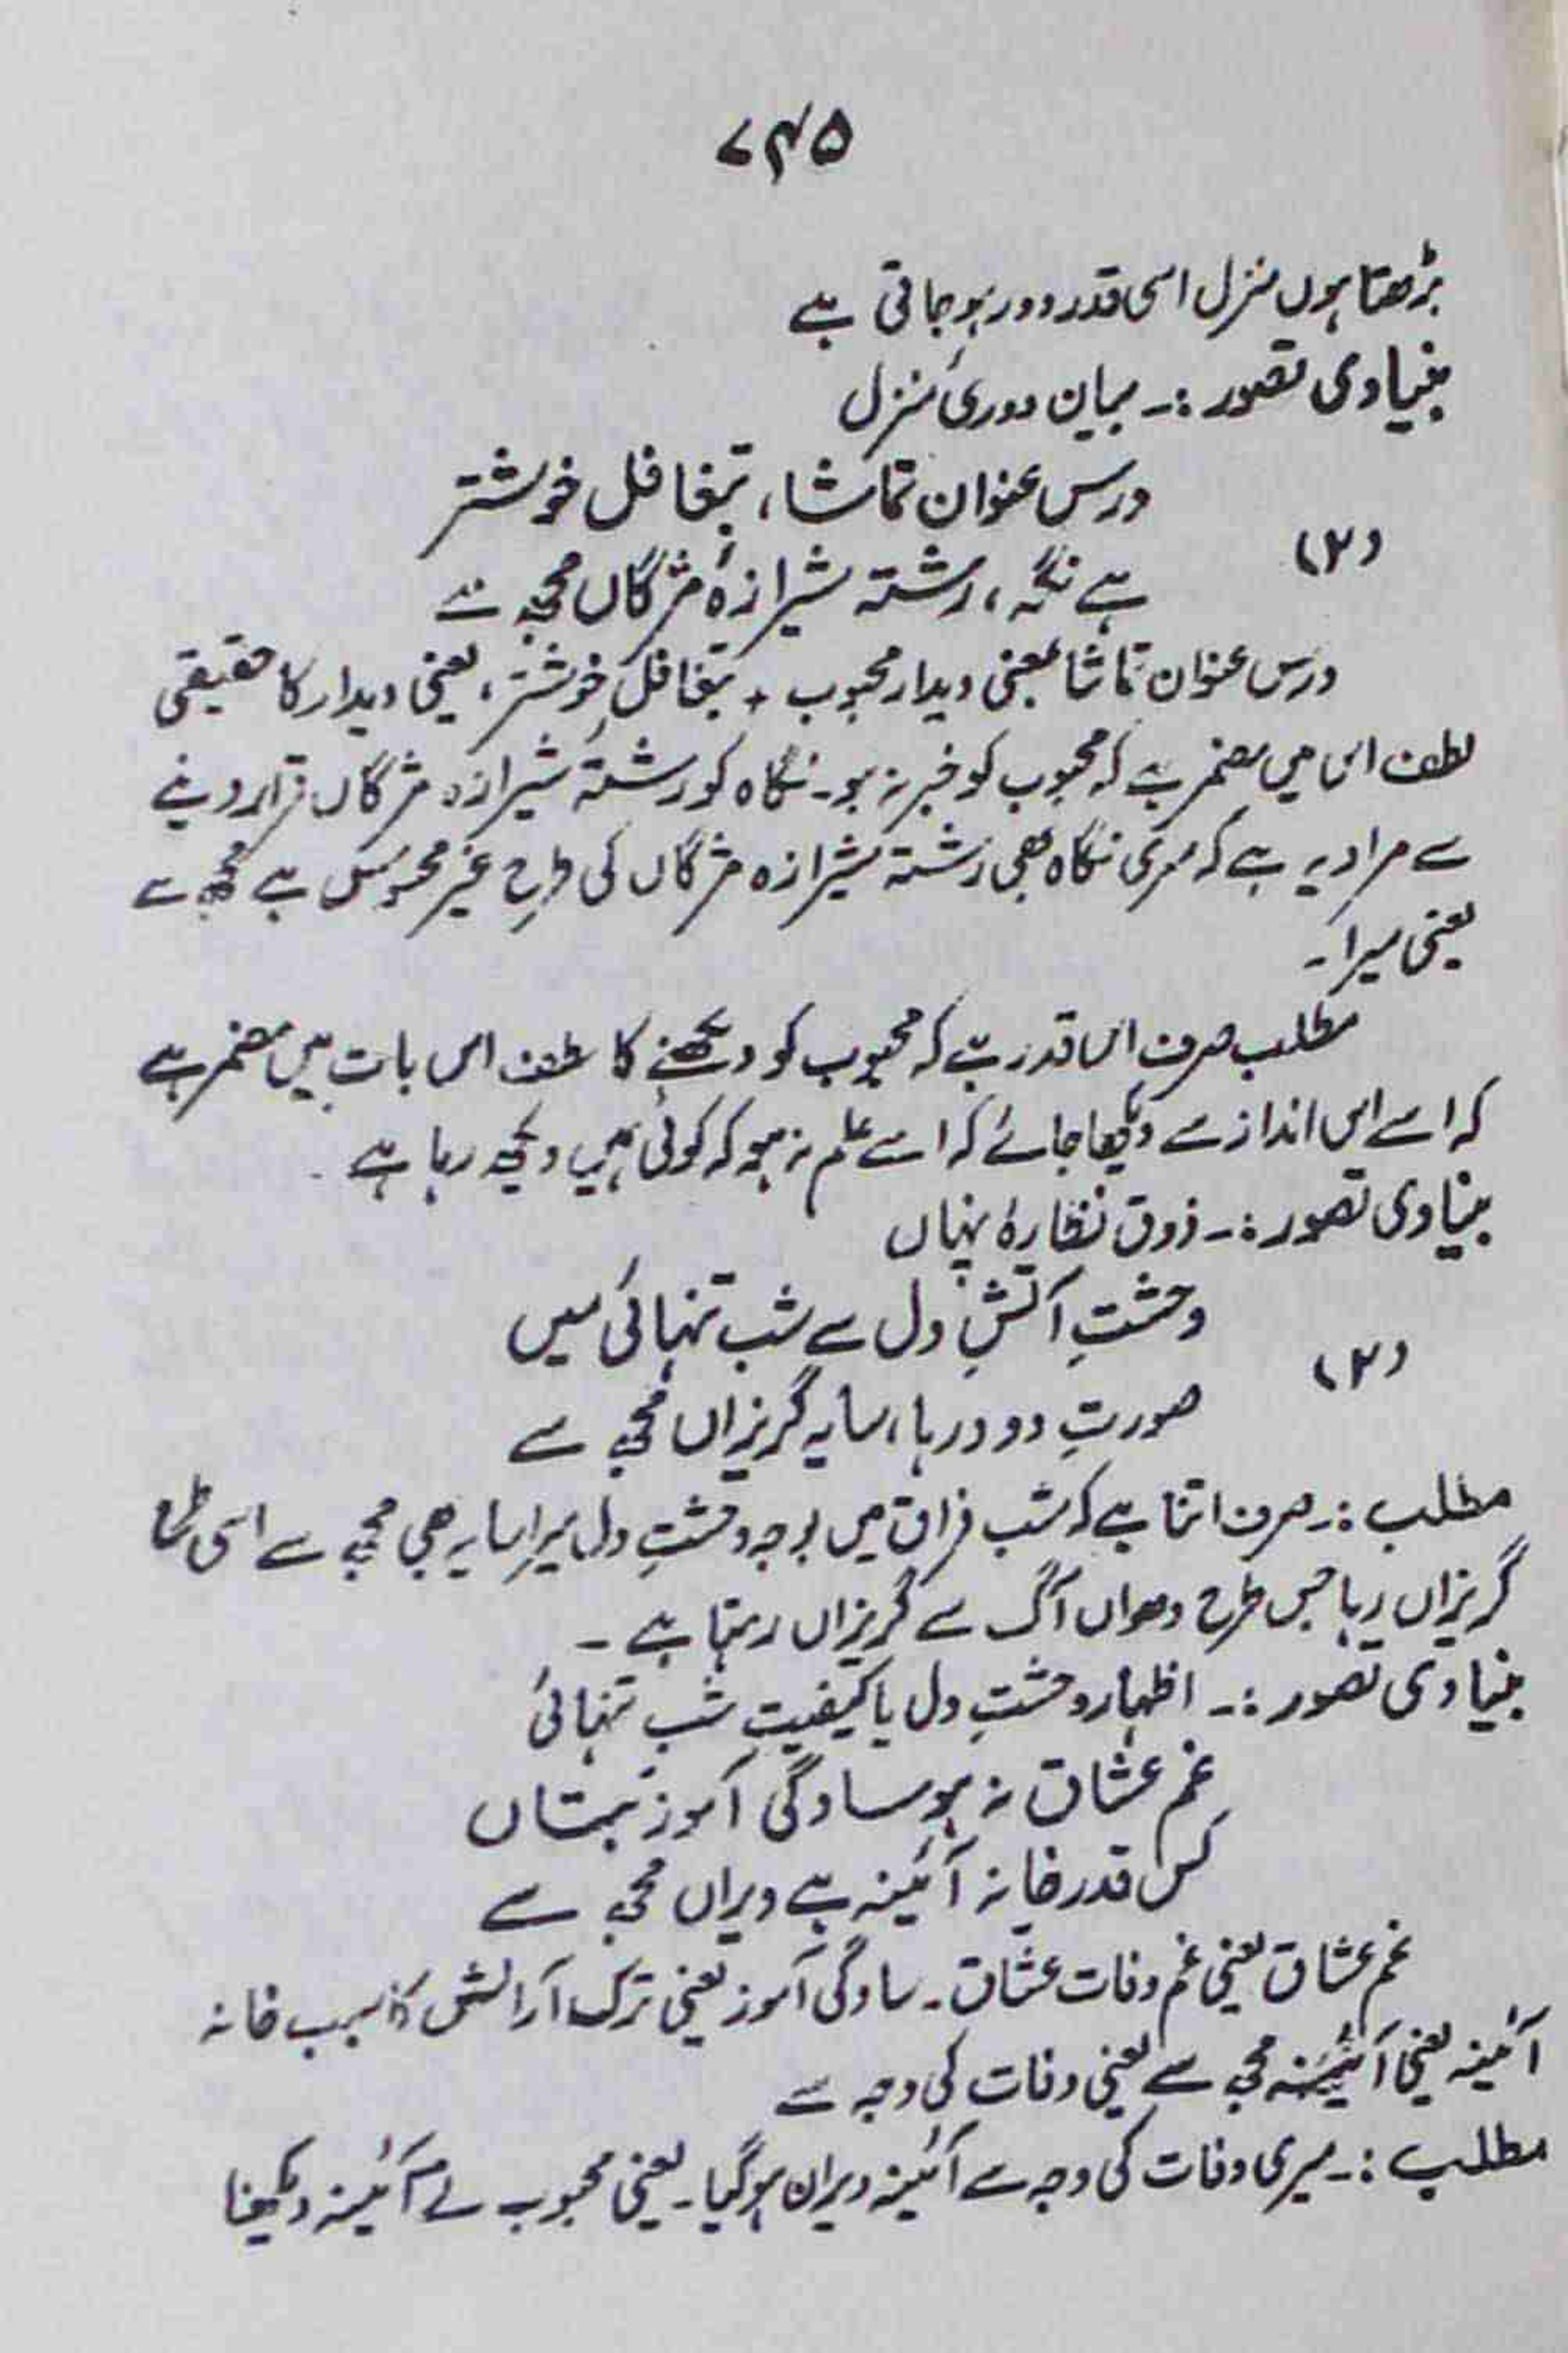 ۷۴۵
بڑھتا ہوں منزل اسی قدر دور ہو جاتی ہے
بنیادی تصور :۔ بیان دوریٔ منزل
درس عنوان تماشا، بتغافل خوشتر
(۲)
ہے نگہ، رشتہ شیرازۂ مژگاں مجھ سے
درس عنوان تماشا بمعنی دیدار محبوب + بتغافلِ خوشتر، یعنی دیدار کا حقیقی
لطف اس میں مضمر ہے کہ محبوب کو خبر نہ ہو۔ نگاہ کو رشتۂ شیرازہ مژگاں قرار دینے
سے مراد یہ ہے کہ مری نگاہ بھی رشتہ شیرازہ مژگاں کی طرح غیر محسوس ہے مجھ سے
یعنی میرا۔
مطلب صرف اس قدر ہے کہ محبوب کو دیکھنے کا لطف اس بات میں مضمر ہے
کہ اسے اس انداز سے دیکھا جائے کہ اسے علم نہ ہو کہ کوئی ہمیں دیکھ رہا ہے ۔
بنیادی تصور :۔ ذوق نظارۂ پنہاں
وحشتِ آتشِ دل سے شب تنہائی میں
(۳)
صورتِ دود رہا، سایہ گریزاں مجھ سے
مطلب :۔ صرف اتنا ہے کہ شب فراق میں بوجہ وحشتِ دل میرا سایہ بھی مجھ سے اسی طرح
گریزاں رہا جس طرح دھواں آگ سے گریزاں رہتا ہے ۔
بنیادی تصور :۔ اظہار وحشتِ دل یا کیفیتِ شب تنہائی
غم عشاق نہ ہو سادگی آموز بتاں
کس قدر خانہ آئینہ ہے ویراں مجھ سے
غم عشاق یعنی غم وفات عشاق ۔ سادگی آموز یعنی ترک آرائش کا سبب خانہ
آئینہ یعنی آئینہ مجھ سے یعنی وفات کی وجہ سے
مطلب :۔ میری وفات کی وجہ سے آئینہ ویران ہو گیا۔ یعنی محبوب نے آئینہ دیکھنا